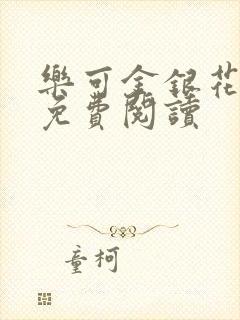 樂可金銀花
免費閱讀
童柯